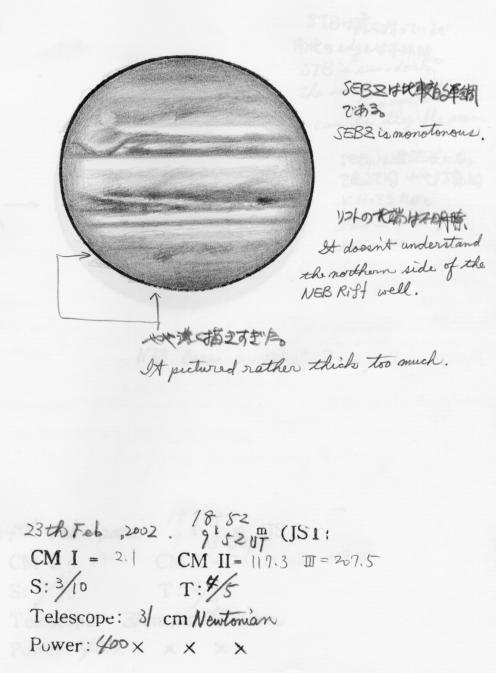 SEBZは比較的単調
である。
SEBZ is monotonous.
リフトの北端は不明瞭
It doesn't understand
the northern side of the
NEB Rift well.
やや濃く描きすぎた。
It pictured rather thick too much.
23th Feb , 2002 .
18 52
9 52 m UT (JST)
CM I = 2.1 CM II= 117.3 III = 207.5
S: 3/10 T: 4/5
Telescope: 31 cm Newtonian
Power: 400× × × ×